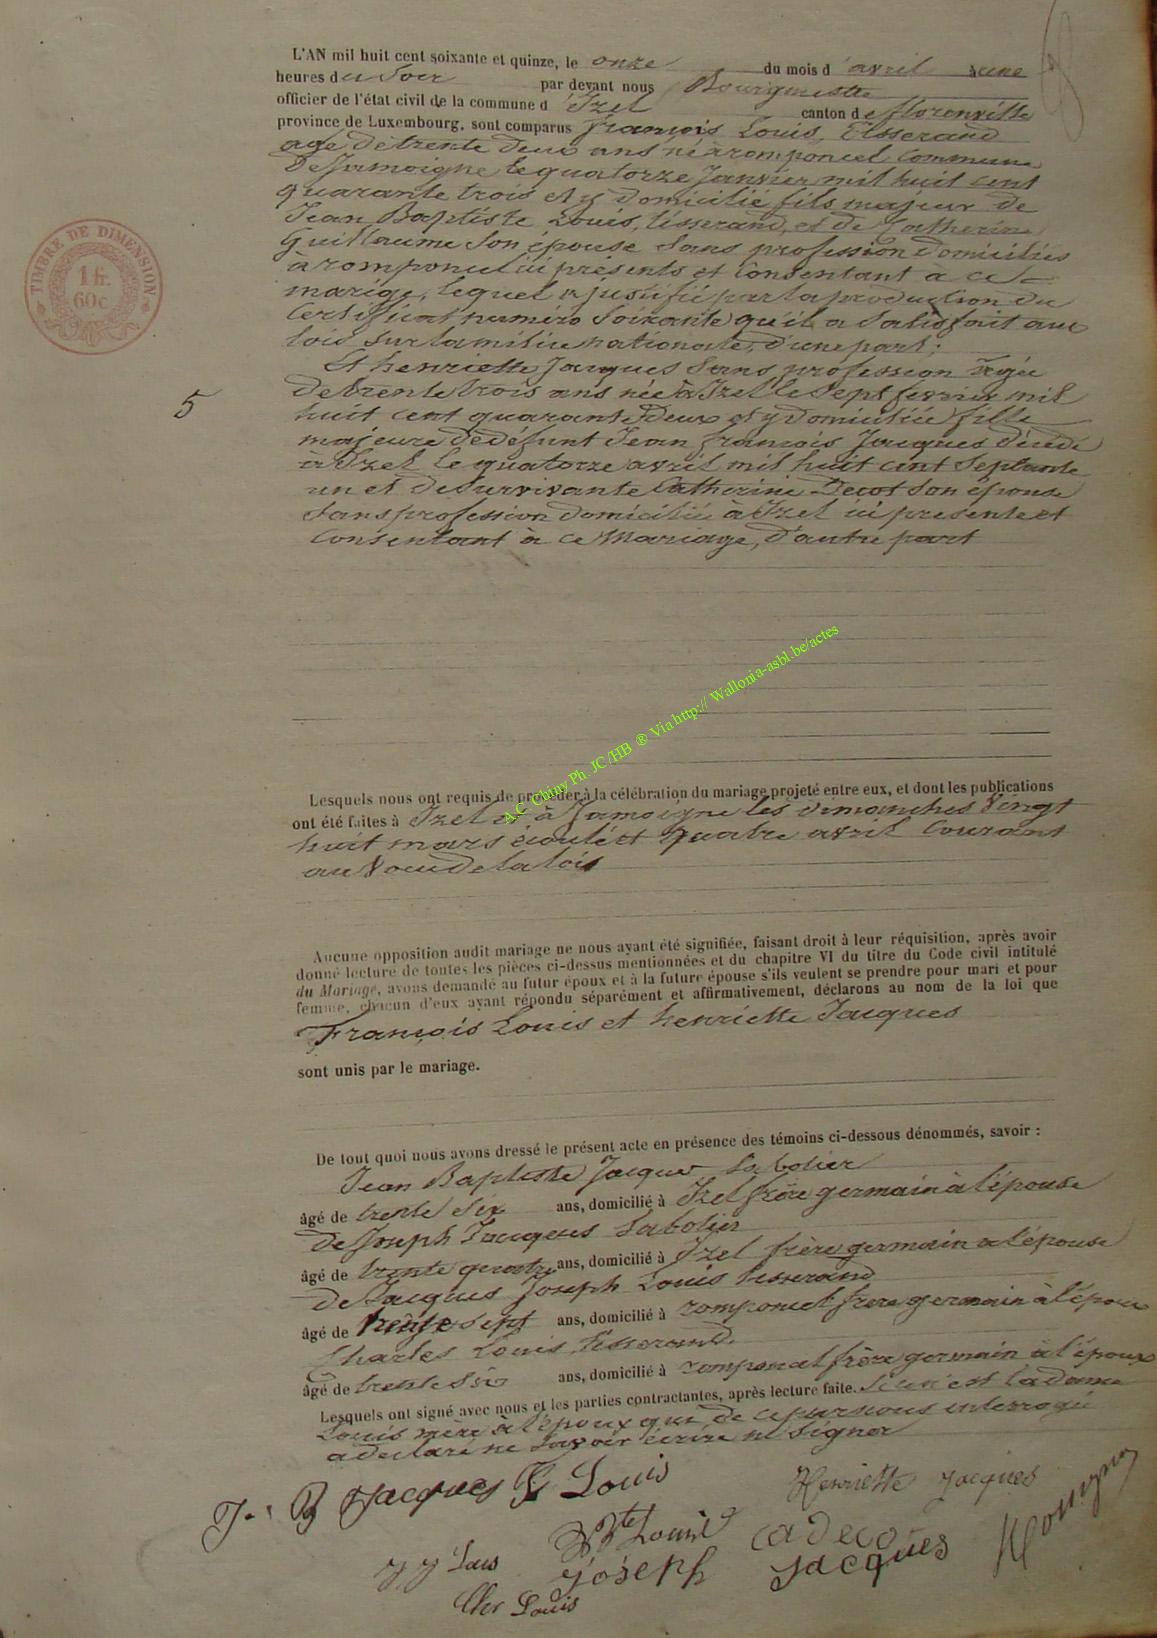 L'AN mil huit cent soixante et quinze, le onze du mois d'avril à une
heures du Soir par devant nous Bourgmestre
officier de l'état civil de la commune d'Izel canton de florenville
province de Luxembourg, sont comparus françois Louis, tisserand
age de trente deux ans né à romponcel commune
de Jamoigne le quatorze Janvier mil huit cent
quarante trois et y domicilié fils majeur de
Jean Baptiste Louis, tisserand, et de Catherine
Guillaume Son épouse Sans profession domiciliés
à romponcel ici présents et Consentant à ce
mariage, lequel a justifié par la production du
Certificat numero Soixante qu'il a Satisfait aux
lois Sur la milice nationale, d'une part;
Et henriette Jacques Sans profession agée
5
de trente trois ans née à Izel le Sept fevrier mil
huit cent quarante deux et y domiciliée fille
majeure de défunt Jean françois Jacques décédé
à Izel le quatorze avril mil huit cent Septante
un et de Survivante Catherine Decot Son épouse
Sans profession domicilié à Izel ici presente et
Consentant a ce Mariage, d'autre part
Lesquels nous ont requis de procéder à la célébration du mariage projeté entre eux, et dont les publications
ont été faites à Izel et à Jamoigne les dimanches Vingt
huit mars écoulé et quatre avril Courant
au Voeu de la loi
Aucune opposition audit mariage ne nous ayant été signifiée, faisant droit à leur réquisition, après avoir
donné lecture de toutes les pièces ci-dessus mentionnées et du chapitre VI du titre du Code civil intitulé
du Mariage, avons demandé au futur époux et à la future épouse s'ils veulent se prendre pour mari et pour
femme, chacun d'eux ayant répondu séparément et affirmativement, déclarons au nom de la loi que
François Louis et henriette Jacques
sont unis par le mariage.
De tout quoi nous avons dressé le présent acte en présence des témoins ci-dessous dénommés, savoir :
Jean Baptiste Jacques Sabotier
âgé de trente Six ans, domicilié à Izel frère germain à l'épouse
de Joseph Jacques Sabotier
âgé de trente quatre ans, domicilié à Izel frère germain a l'épouse
de Jacques Joseph Louis tisserand
âgé de trente sept ans, domicilié à romponcel frère germain à l'époux
Charles Louis tisserand
âgé de trente Six ans, domicilié à romponcel frère germain à l'époux
Lesquels ont signé avec nous et les parties contractantes, après lecture faite. Si ce n'est la dame
Louis mère à l'époux qui de ce par nous interrogé
a declaré ne Savoir écrire ni Signer
J. B Jacques F Louis Henriette Jacques
JBte Louis ca decot
J J Louis Joseph Jacques
Cher Louis
TIMBRE DE DIMENSION
1 fr.
60c
A.C Chiny Ph. JC/HB ® Via http:// Wallonia-asbl.be/actes